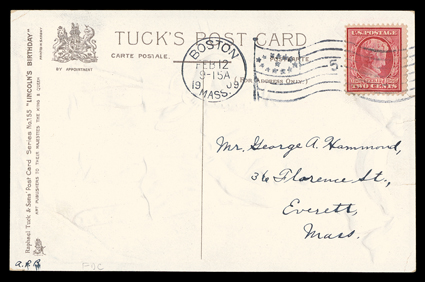 TUCK'S POST CARD
CARTE POSTALE.
BY APPOINTMENT
BOSTON
FEB 12
9-15A
1909
MASS.
U.S. POSTAGE
TWO CENTS
Mr. George A. Hammond,
36 Florence St.,
Everett,
Mass.
Raphael Tuck & Sons' Post Card Series No. 155 "LINCOLN'S BIRTHDAY"
ART PUBLISHERS TO THEIR MAJESTIES THE KING & QUEEN